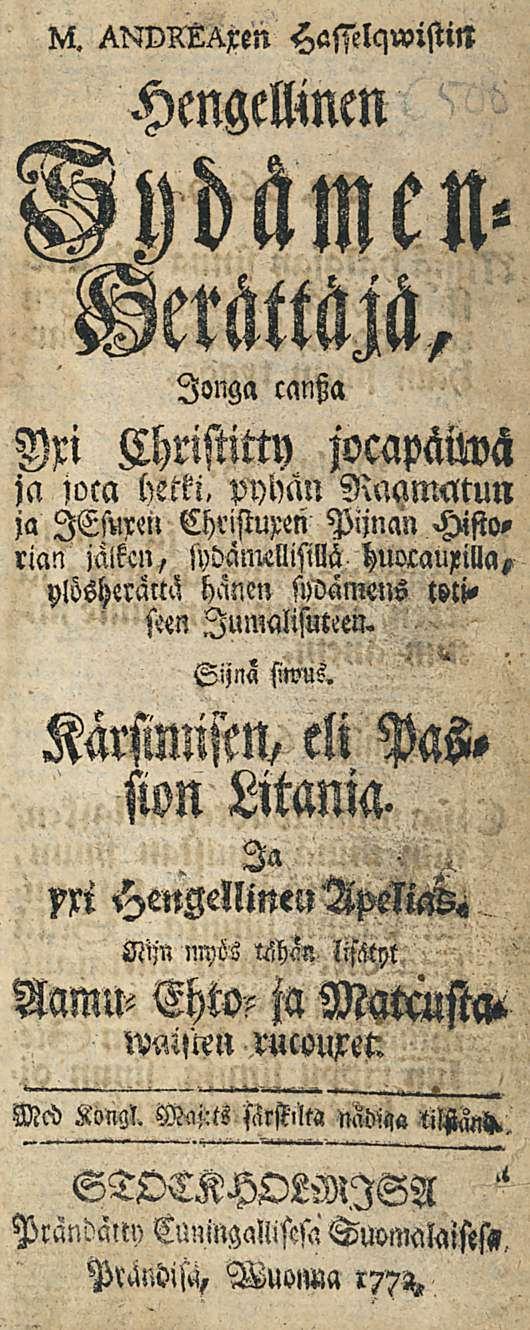 M. ANDREAxen Hasselqwistin
Hengellinen
Sydämen-
Herättäjä,
Jonga canßa
Yxi Christitty jocapäiwä
ja joca hetki, pyhän Raamatun
ja JEsuxen Christuxen Pijnan Histo-
rian jälken, sydämellisillä huocauxilla,
ylösherättä hänen sydämens toti-
seen Jumalisuteen.
Sijnä siwus.
Kärsimisen, eli Pas-
sion Litania.
Ja
yxi Hengellinen Apelias.
Nijn myös tähän lisätyt
Aamu- Ehto- ja Matcusta-
waisten rucouxet.
Med Kongl. Maj:ts särskilta nådiga tilstånd.
STOCKHOLMISA
Prändätty Cuningallisesa Suomalaisesa
Prändisä, Wuonna 1772.